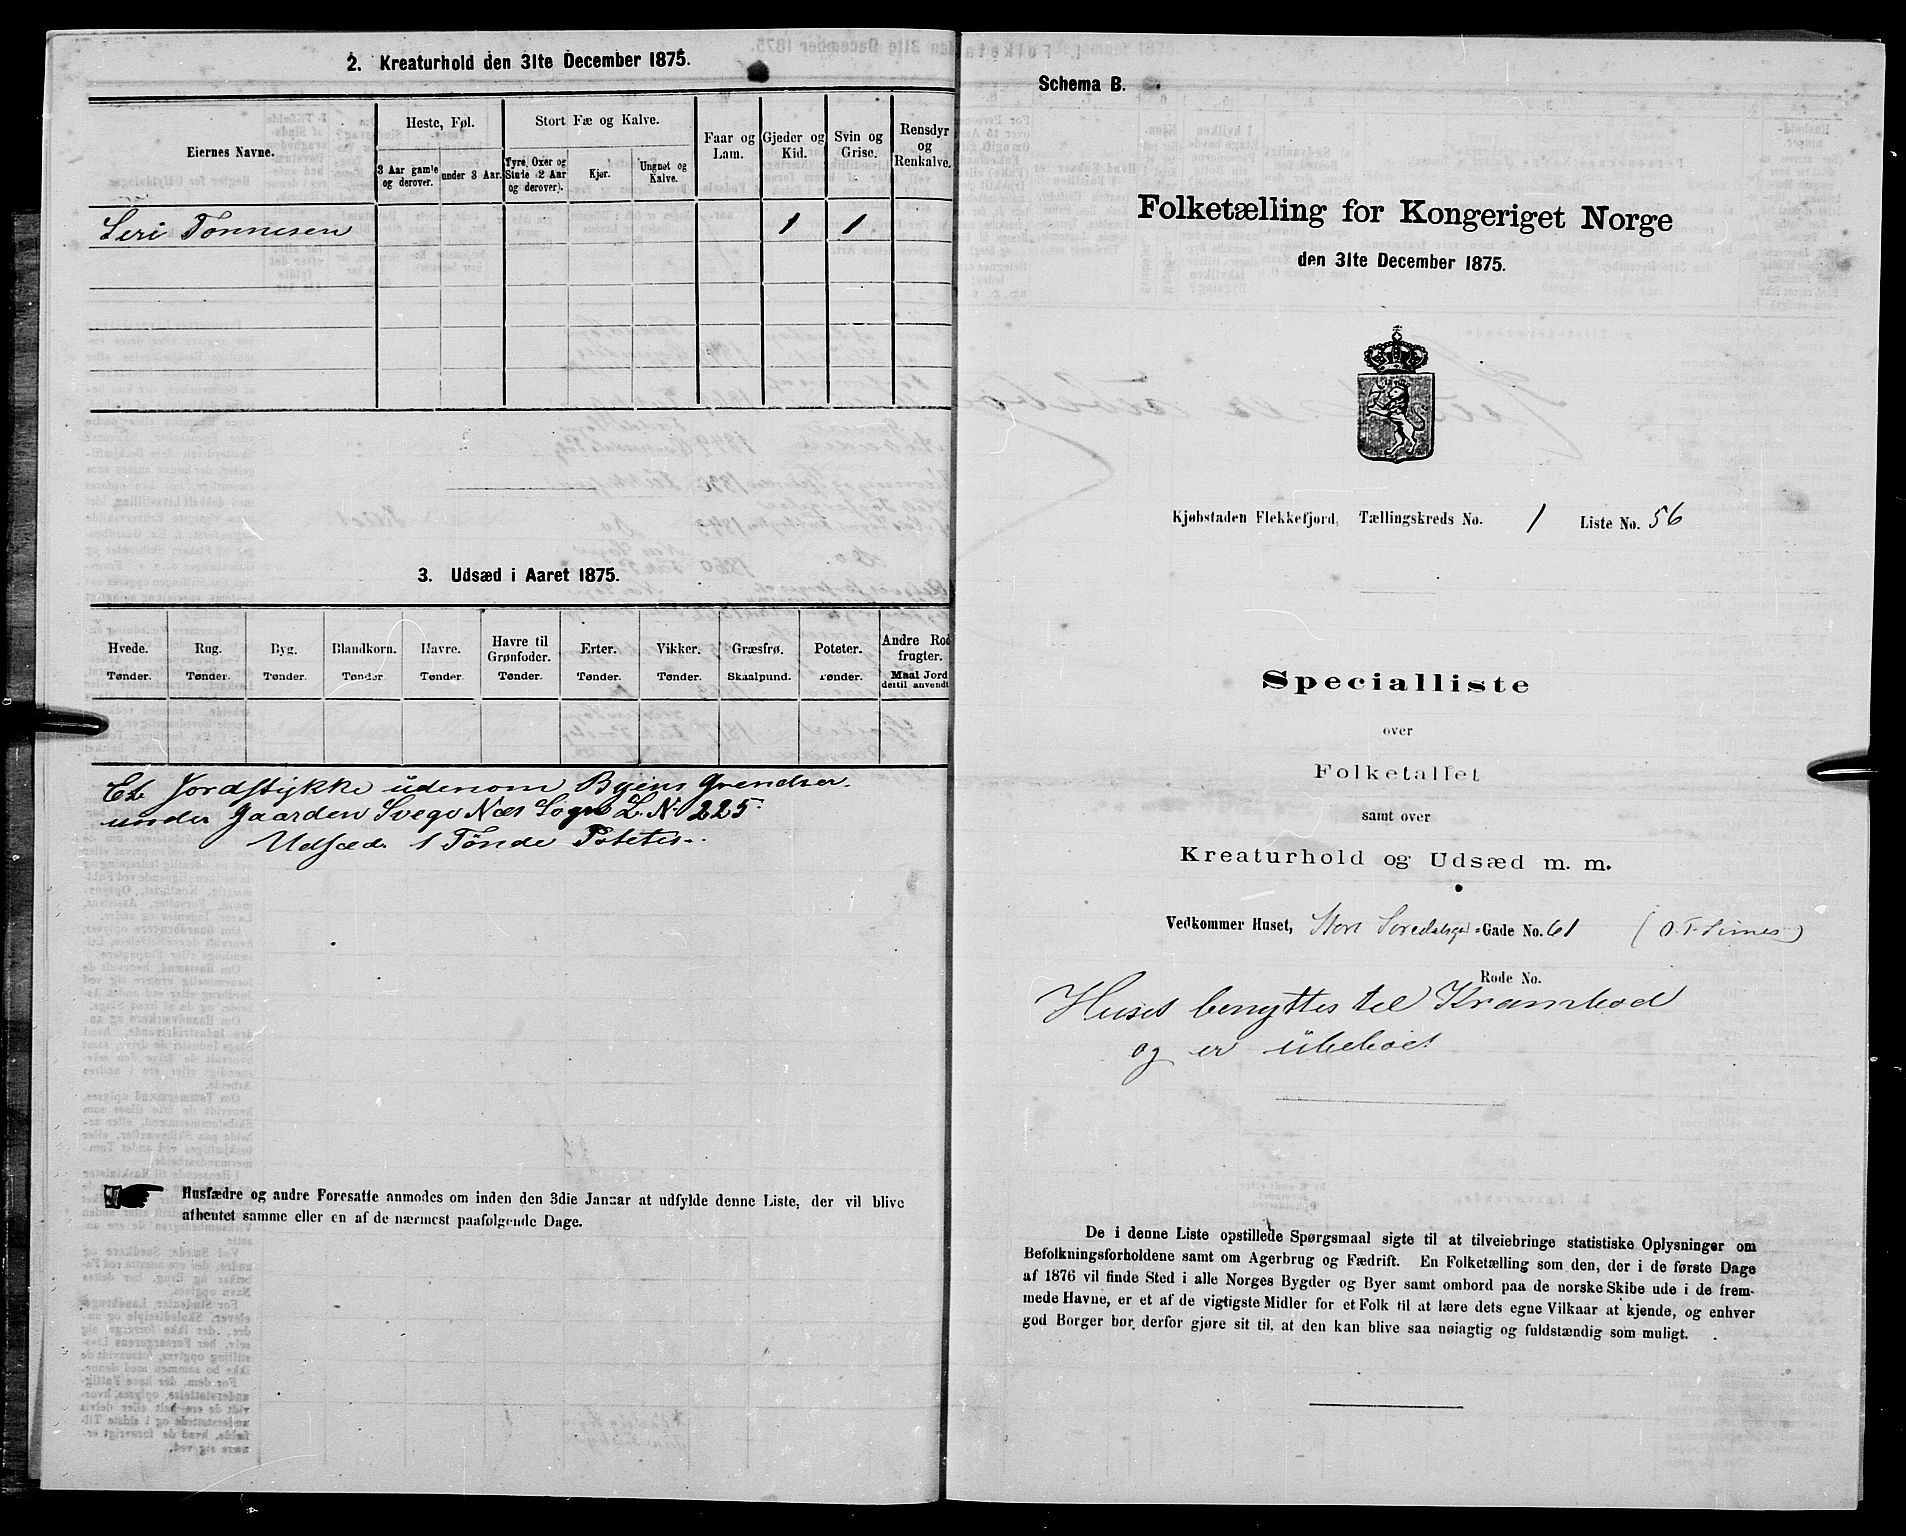 2. Kreaturhold den 31te December 1875.
Eiernes Navne.
Heste, Føl.
Stort Fæ og Kalve.
Faar og Lam.
Gjeder og Kid.
Svin og Grise.
Rensdyr og Renkalve.
3 Aar gamle og derover.
under 3 Aar.
Tyre, Oxer og Stude (2 Aar og derover).
Kjør.
Ungnøt og Kalve.
Seri Tønnesen 1 1
3. Udsæd i Aaret 1875.
Hvede. Rug. Byg. Blandkorn. Havre. Havre til Grønfoder. Erter. Vikker. Græsfrø. Poteter. Andre Rodfrugter.
Tønder. Tønder. Tønder. Tønder. Tønder. Tønder. Tønder. Tønder. Skaalpund. Tønder. Maal Jord dertil anvendt.
Et Jordstykke udenom Byens Grendser
under Gaarden Svege Næs Sogn L. No 225
Udsæd 1 Tønde Poteter.
Husfædre og andre Foresatte anmodes om inden den 3die Januar at udfylde denne Liste, der vil blive
afhentet samme eller en af de nærmest paafølgende Dage.
Schema B.
Folketælling for Kongeriget Norge
den 31te December 1875.
Kjøbstaden Flekkefjord, Tællingskreds No. 1 Liste No. 56
Specialliste
over
Folketallet
samt over
Kreaturhold og Udsæd m. m.
Vedkommer Huset, Gade No. 61
Rode No.
Huset benyttes til Krambod
og er übeboet
De i denne Liste opstillede Spørgsmaal sigte til at tilveiebringe statistiske Oplysninger om
Befolkningsforholdene samt om Agerbrug og Fædrift. En Folketælling som den, der i de første Dage
af 1876 vil finde Sted i alle Norges Bygder og Byer samt ombord paa de norske Skibe ude i de frem-
mede Havne, er et af de vigtigste Midler for et Folk til at lære dets egne Vilkaar at kjende, og enhver
god Borger bør derfor gjøre sit til, at den kan blive saa nøiagtig og fuldstændig som muligt.